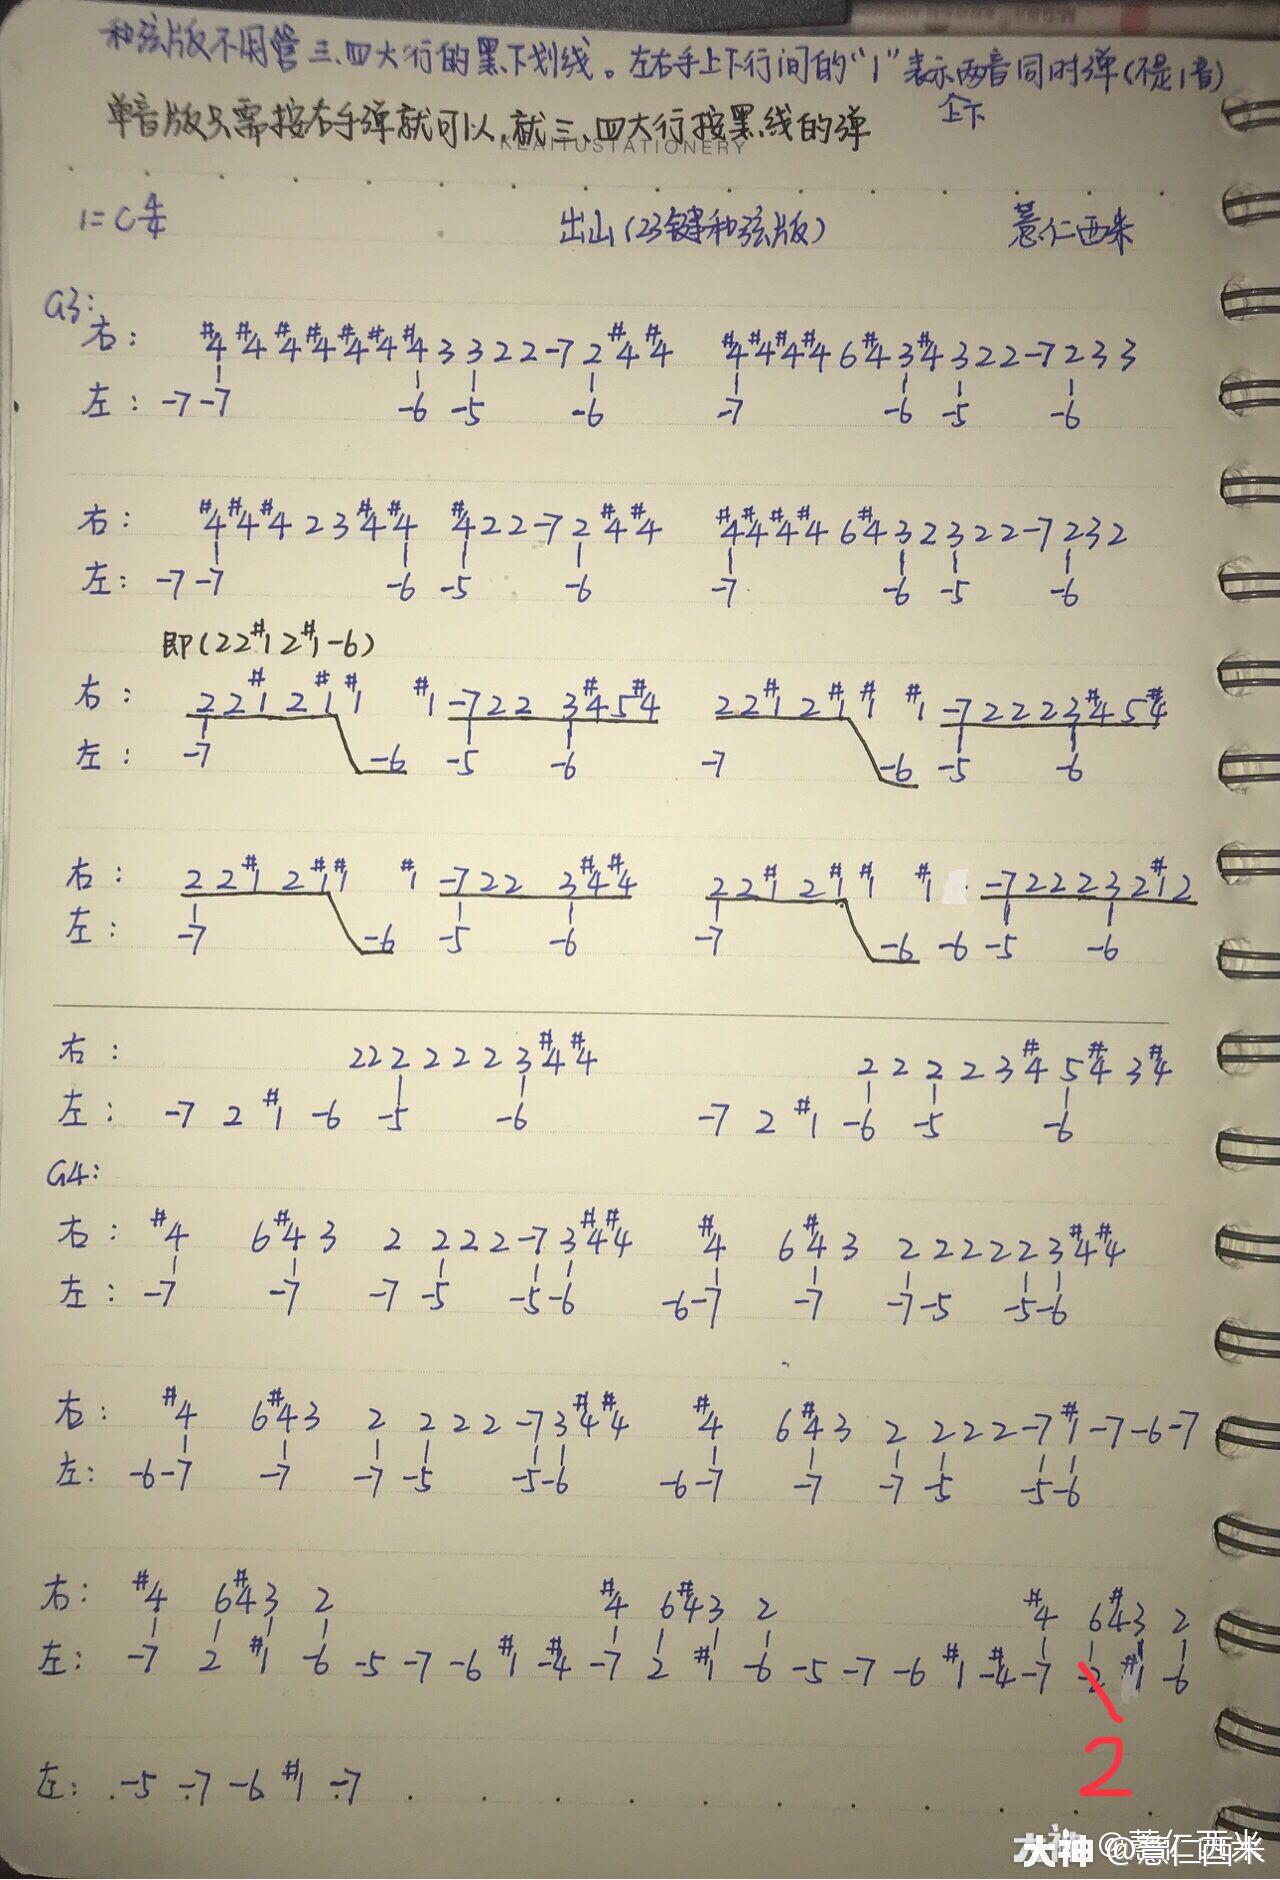 和弦版不用管三、四大行的黑下划线。左右手上下行间的“1”表示两音同时弹(不是1音)
上下
单音版只需按右手弹就可以,就三、四大行按黑线的弹
KEAITUSTATIONERY
1=C4/4 出山(23键和弦版) 薏仁西米
G3:
右: #4 #4 #4 #4 #4 #4 #4 3 3 2 2 -7 2 #4 #4 #4 #4 #4 #4 6 #4 3 #4 3 2 2 -7 2 3 3
左: -7 -7 -6 -5 -6 -7 -6 -5 -6
右: #4 #4 #4 2 3 #4 #4 #4 2 2 -7 2 #4 #4 #4 #4 #4 #4 6 #4 3 2 3 2 2 -7 2 3 2
左: -7 -7 -6 -5 -6 -7 -6 -5 -6
即(22#12#1-6)
右: 2 2 #1 2 #1 #1 #1 -7 2 2 3 #4 5 #4 2 2 #1 2 #1 #1 #1 -7 2 2 2 3 #4 5 #4
左: -7 -6 -5 -6 -7 -6 -5 -6
右: 2 2 #1 2 #1 #1 #1 -7 2 2 3 #4 #4 2 2 #1 2 #1 #1 #1 -7 2 2 2 3 2 #1 2
左: -7 -6 -5 -6 -7 -6 -6 -5 -6
右: 2 2 2 2 2 2 3 #4 #4 2 2 2 2 3 #4 5 #4 3 #4
左: -7 2 #1 -6 -5 -6 -7 2 #1 -6 -5 -6
G4:
右: #4 6 #4 3 2 2 2 2 -7 3 #4 #4 #4 6 #4 3 2 2 2 2 2 3 #4 #4
左: -7 -7 -7 -5 -5 -6 -6 -7 -7 -7 -5 -5 -6
右: #4 6 #4 3 2 2 2 2 -7 3 #4 #4 #4 6 #4 3 2 2 2 2 -7 #1 -7 -6 -7
左: -6 -7 -7 -7 -5 -5 -6 -6 -7 -7 -7 -5 -5 -6
右: #4 6 #4 3 2 #4 6 #4 3 2 #4 6 #4 3 2
左: -7 2 #1 -6 -5 -7 -6 #1 -#4 -7 2 #1 -6 -5 -7 -6 #1 -#4 -7 -2 #1 -6
2
左: -5 -7 -6 #1 -7
大神 @薏仁西米